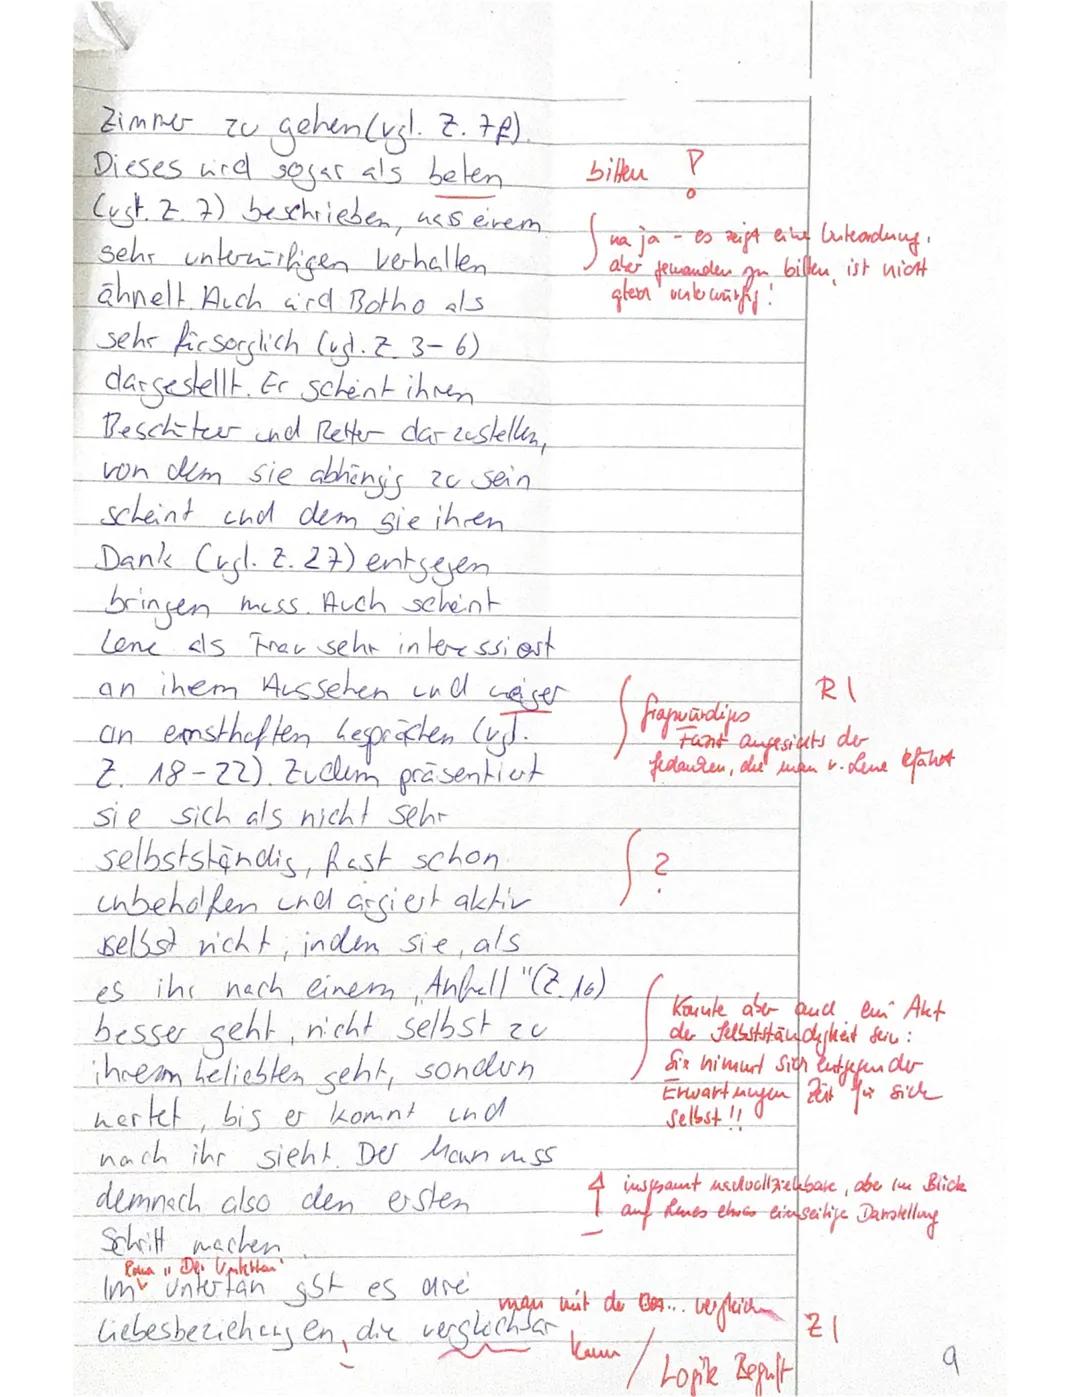 Zimmer zu gehen (vgl. Z. 7f).
Dieses wird sogar als beten
bitten ?
(vgl. Z. 7) beschrieben, was einem
sehr unterwürfigen Verhalten
na ja - es zeigt eine Unterordnung,
aber jemanden zu bitten, ist nicht
gleich unterwürfig!
ähnelt. Auch wird Botho als
sehr fürsorglich (vgl. Z. 3-6)
dargestellt. Er scheint ihren
Beschützer und Retter darzustellen,
von dem sie abhängig zu sein
scheint und dem sie ihren
Dank (vgl. Z. 27) entgegen
bringen muss. Auch scheint
Lene als Frau sehr interessiert
an ihrem Aussehen und weniger
R I
an ernsthaften Gesprächen (vgl.
fragwürdiges
Fazit angesichts der
Gedanken, die man v. Lene erfährt
Z. 18-22). Zudem präsentiert
sie sich als nicht sehr
selbstständig, fast schon
?
unbeholfen und agiert aktiv
selbst nicht, indem sie, als
es ihr nach einem „Anfall" (Z. 16)
besser geht, nicht selbst zu
ihrem Geliebten geht, sondern
wartet, bis er kommt und
Könnte aber auch ein Akt
der Selbstständigkeit sein:
Sie nimmt sich entgegen der
Erwartungen Zeit für sich
selbst!!
nach ihr sieht. Der Mann muss
demnach also den ersten
insgesamt nachvollziehbare, aber im Blick
auf Lenes etwas einseitige Darstellung
Schritt machen.
Roman "Der Untertan"
Im Untertan gibt es drei
Liebesbeziehungen, die vergleichbar
man mit der Bez... vergleichen
kann / Logik Begriff
Z I
9